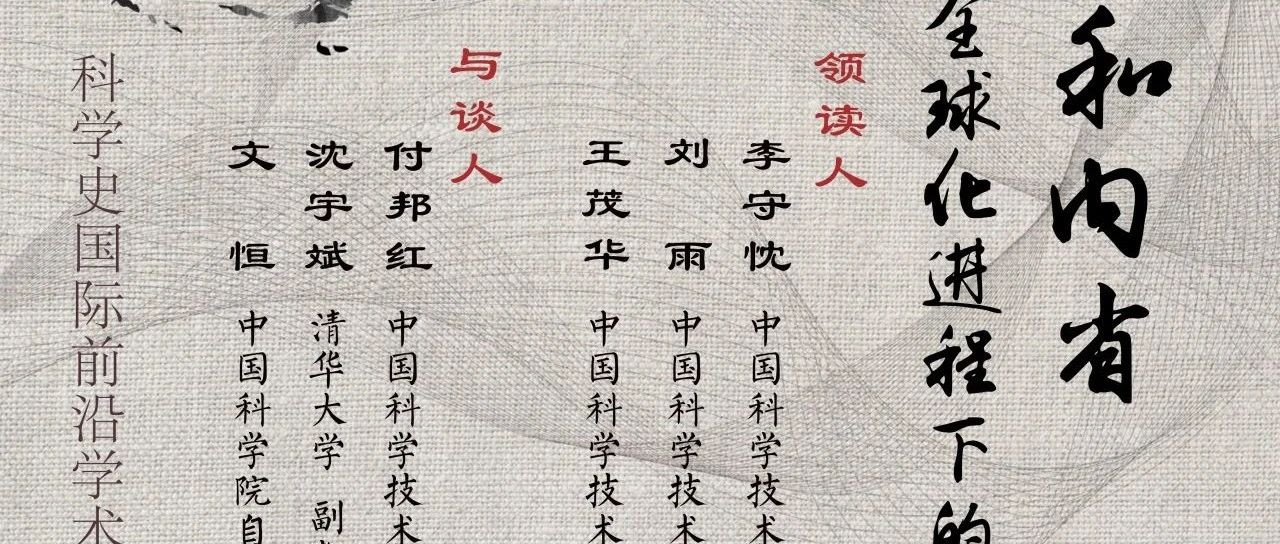 和内省
全球化进程下的
领读人
李守忱 中国科学技术
刘雨 中国科学技术
王茂华 中国科学技术
与谈人
付邦红 中国科学技术
沈宇斌 清华大学 副
文恒 中国科学院自
科学史国际前沿学术